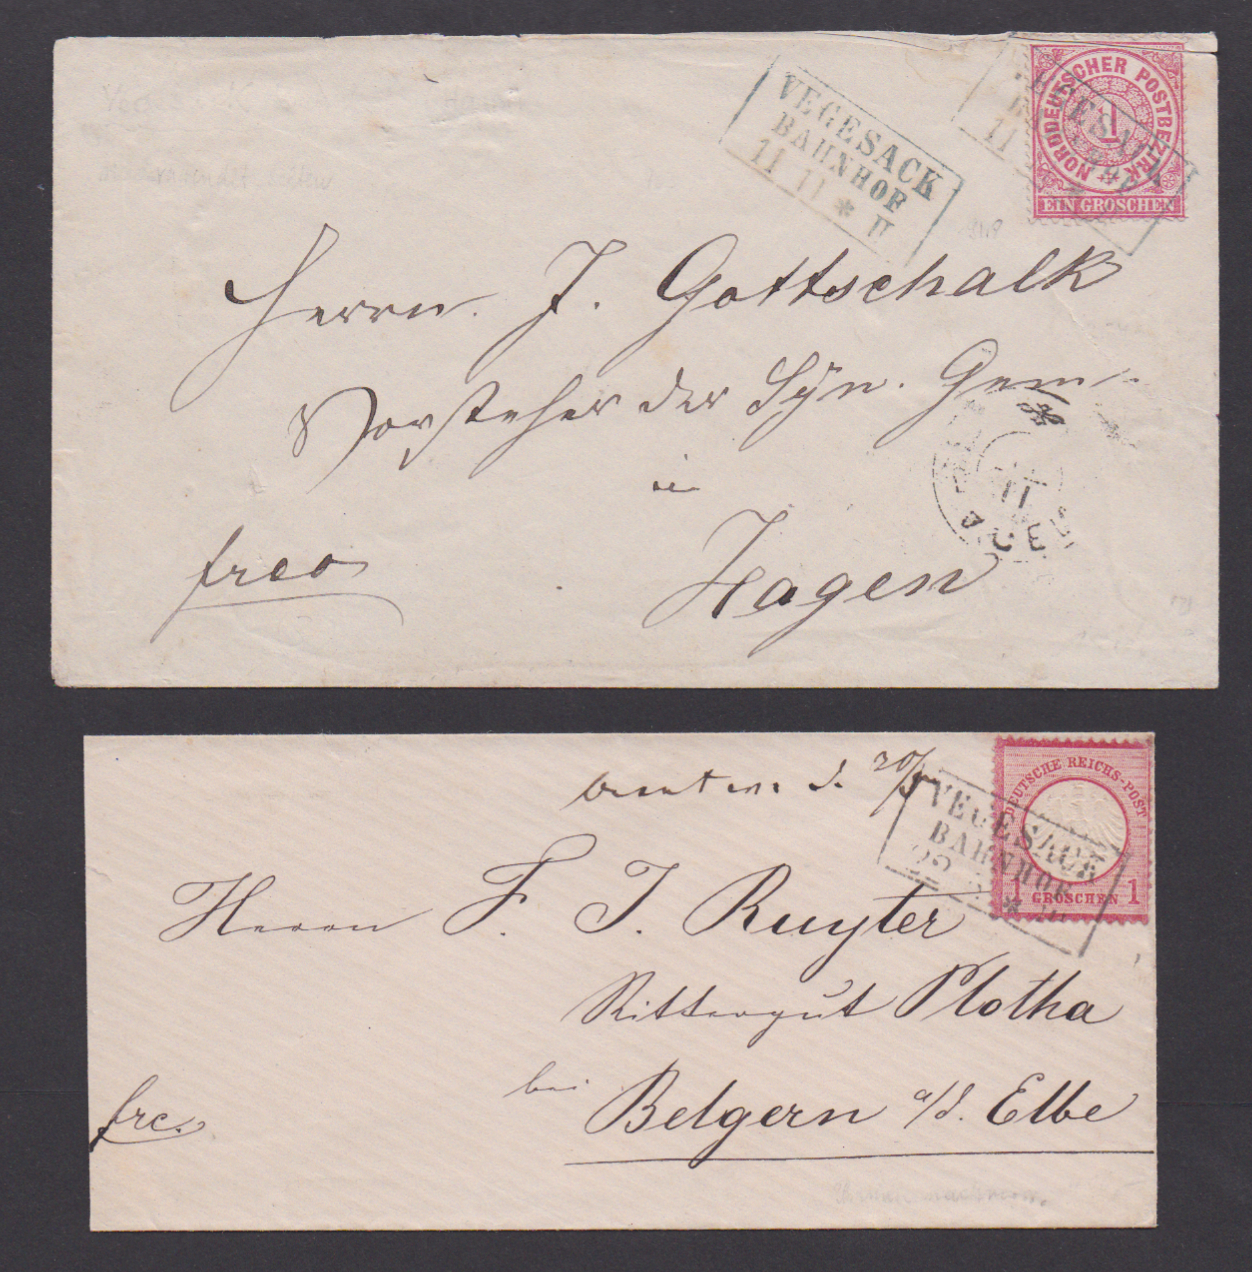 VEGESACK
BAHNHOF
11 11 * II
NORDDEUTSCHER POSTBEZIRK
1
EIN GROSCHEN
Herrn J. Gottschalk
Vorsteher der Syn. Gem
in
Hagen
franco
11
20/5
VEGESACK
BAHNHOF
22
DEUTSCHE REICHS-POST
1 GROSCHEN 1
Herrn F. J. Ruyter
Rittergut Plotha
bei Belgern a/d. Elbe
frc.